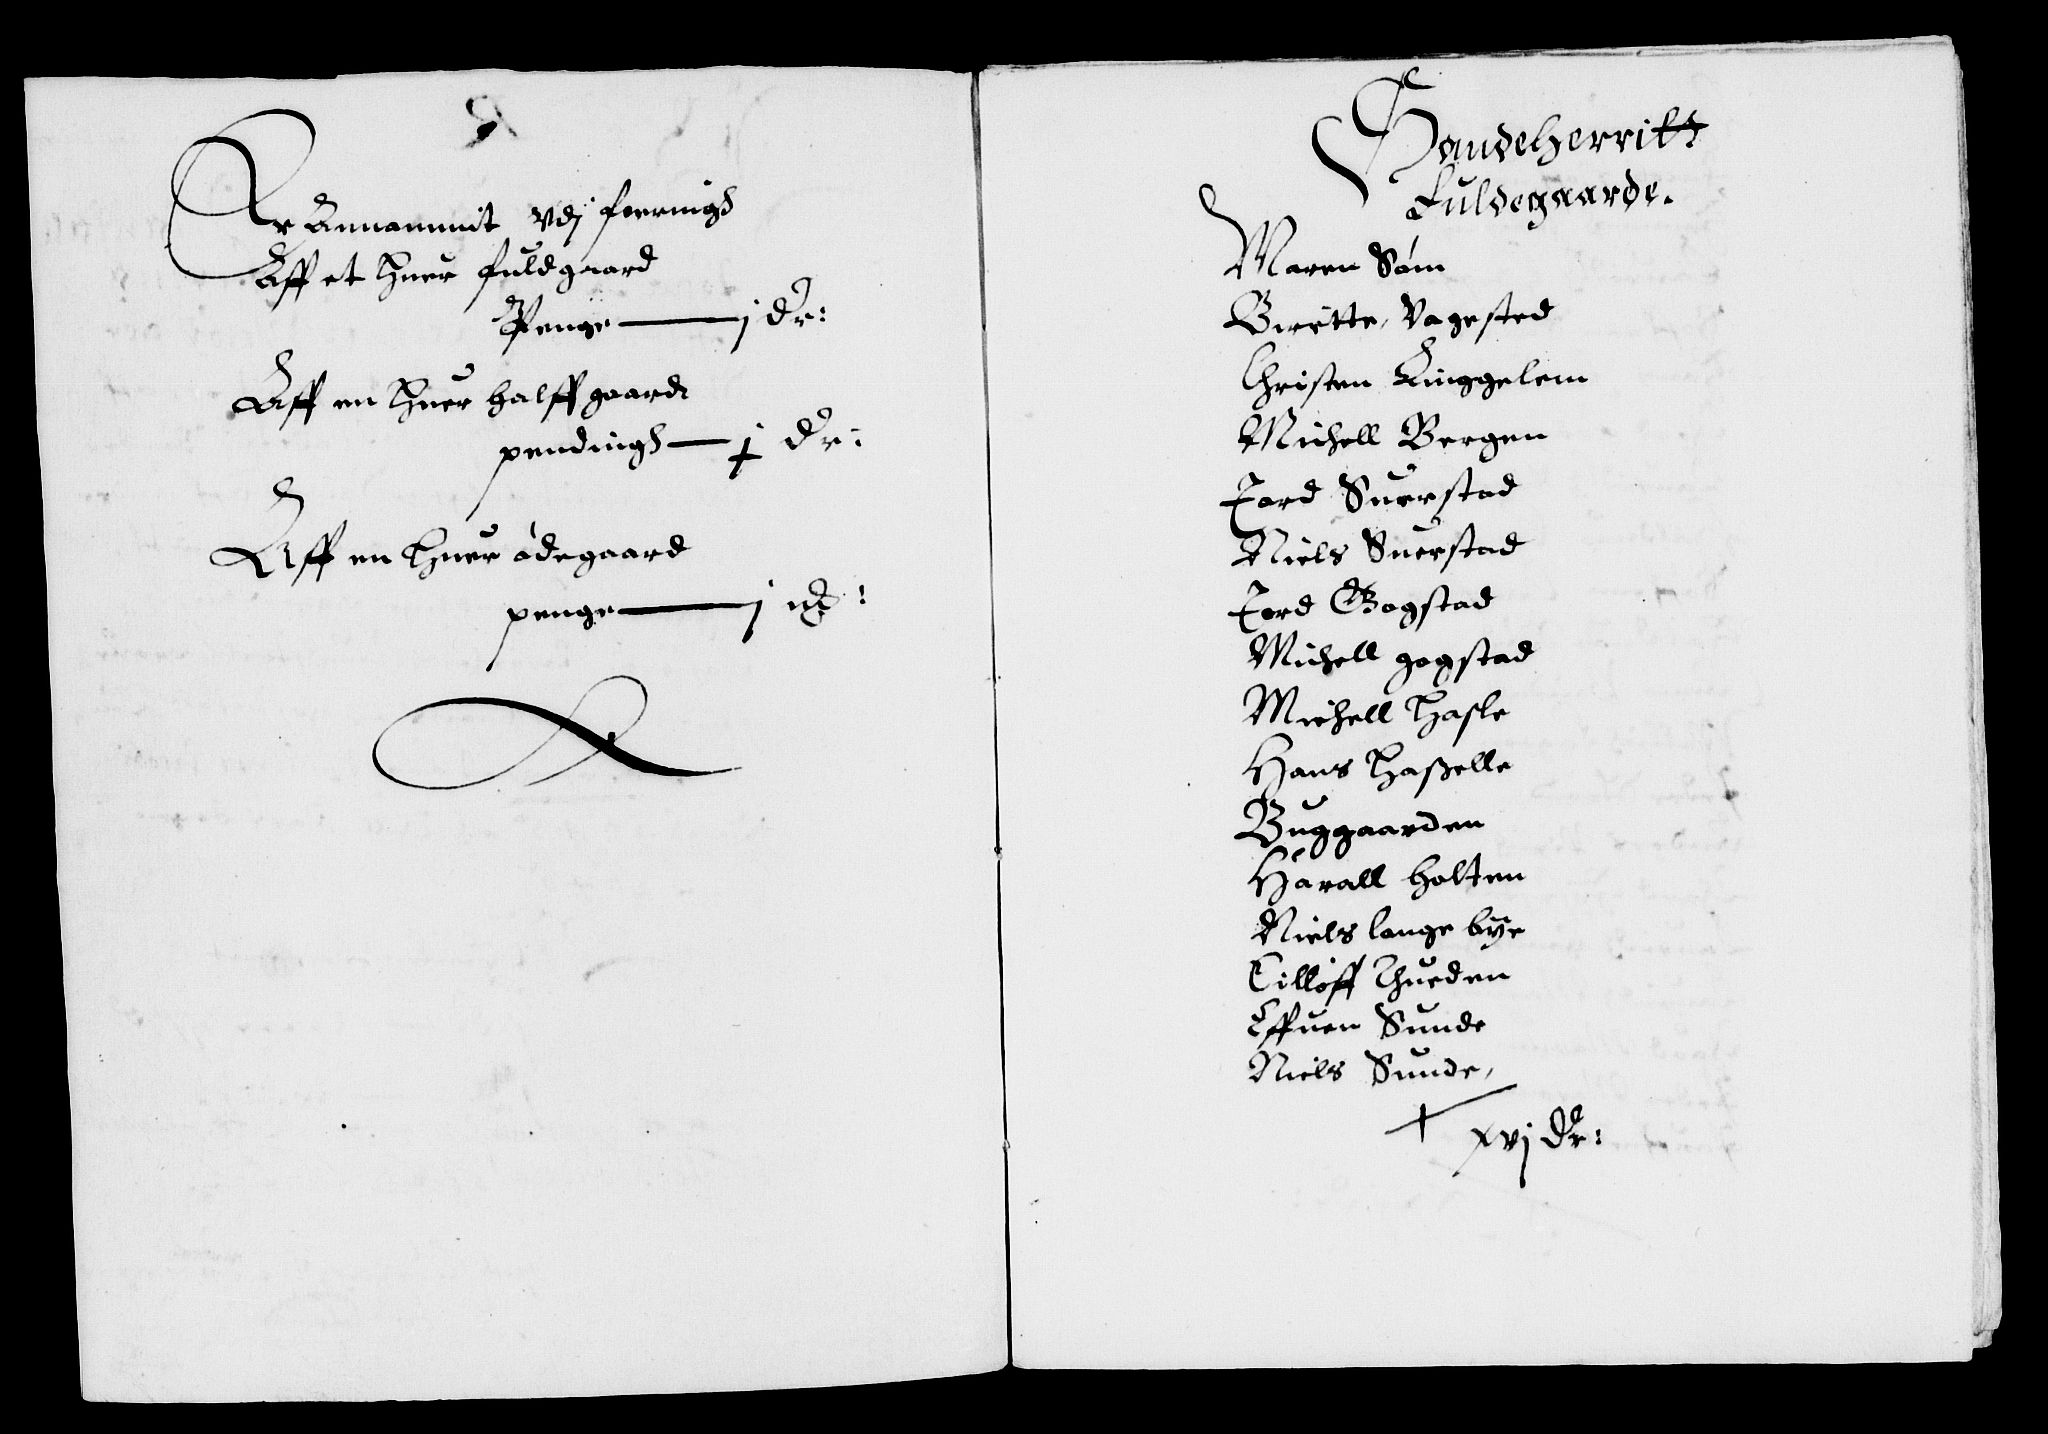 Er Annammit vdj foerings
Aff et huer fuldgaard
Penge — j dr:
Aff en huer halff gaard
pendings — j dr:
Aff en huer ødegaard
penge — j
Sandeherritt
Fuldegaarde.
Maren Søm
Birette Vagested
Christen Linggelem
Michell Bergen
Tord Suerstad
Niels Suerstad
Tord Gogstad
Michell gogstad
Michell Hasle
Hans Haßelle
Buggaarden
Harall holten
Niels lange bye
Tilloff Thueden
Effuen Sunde
Niels Sunde,
xvj dr: